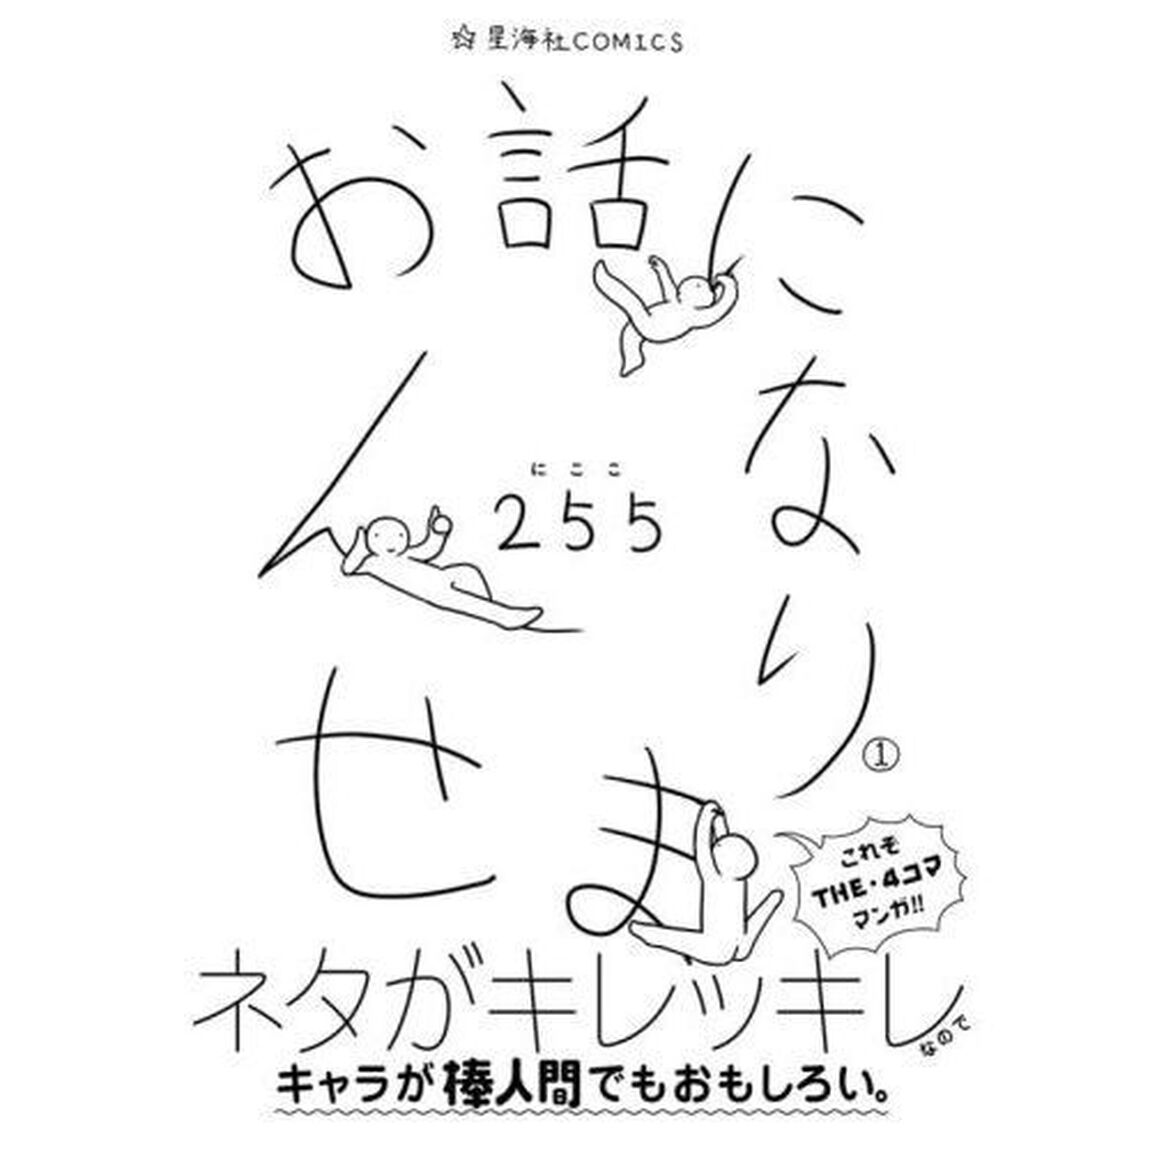 ☆星海社COMICS
お話に
なり
ません
にここ
255
①
これぞ
THE・4コマ
マンガ!!
ネタがキレッキレ
なので
キャラが棒人間でもおもしろい。